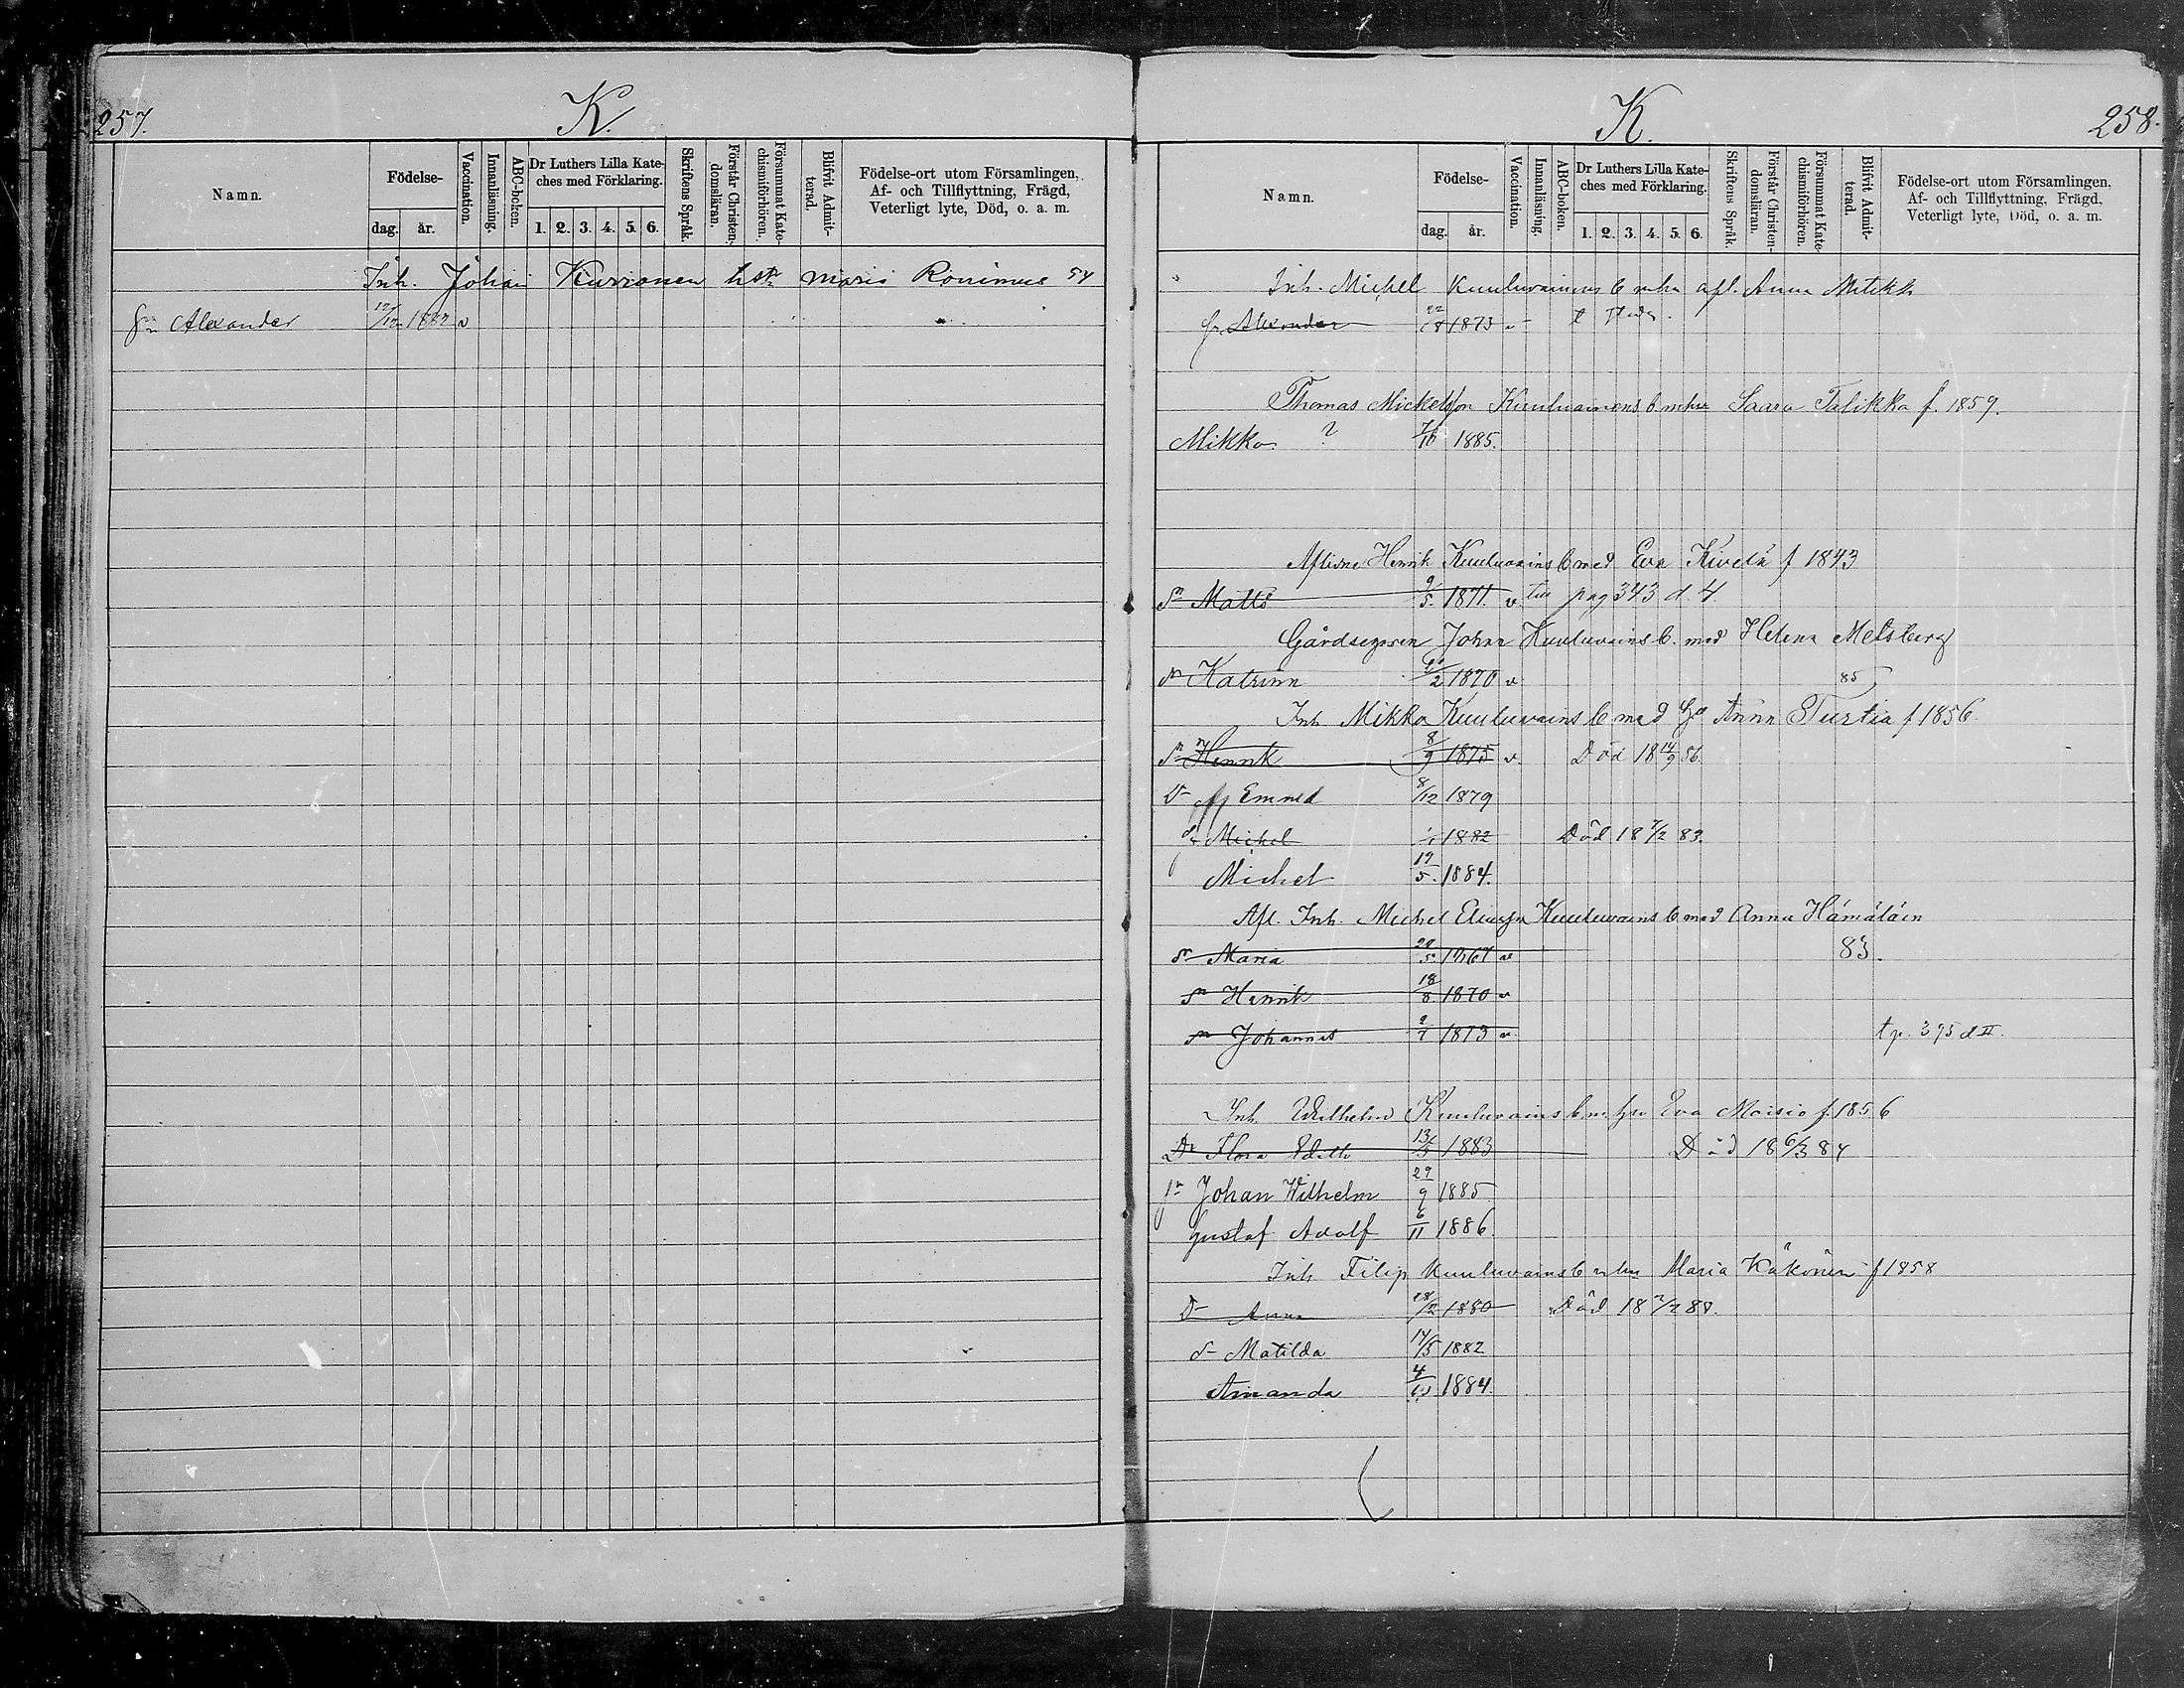 257.
K.
Namn.
Födelse-
dag.
år.
Vaccination.
Innanläsning.
ABC-boken.
Dr Luthers Lilla Kate-
ches med Förklaring.
1. 2. 3. 4. 5. 6.
Skriftens Språk.
Förstår Christen-
domsläran.
Försummat Kate-
chismiförhören.
Blifvit Admit-
terad.
Födelse-ort utom Församlingen,
Af- och Tillflyttning, Frägd,
Veterligt lyte, Död, o. a. m.
Inh. Johan Kurronen hstr Maria Ronimus 54
Alexander 12/12 1882 v
K.
258.
Namn.
Födelse-
dag.
år.
Vaccination.
Innanläsning.
ABC-boken.
Dr Luthers Lilla Kate-
ches med Förklaring.
1. 2. 3. 4. 5. 6.
Skriftens Språk.
Förstår Christen-
domsläran.
Försummat Kate-
chismiförhören.
Blifvit Admit-
terad.
Födelse-ort utom Församlingen,
Af- och Tillflyttning, Frägd,
Veterligt lyte, Död, o. a. m.
Inh. Michel Kuuluvainens b mhu afl. Anna
Alexander 1873 v
Thomas Mickelsson Kuuluvainens b mhu Saara Talikka f. 1859.
Mikko ? 1885.
Henrik Kuuluvains b med Eva Kivelä f 1843
Sn Matts 9/5. 1871. v pag 343 d. 4.
Johan Kuuluvains b. med Helena Melsberg
Katrina 1870 v 85
Inh Mikko Kuuluvains b med Anna Turtia f 1856.
Sn Henrik 8/9 1875 v. Död 18 14/9 86.
D 8/12 1879
Michel 1882 Död 18 7/2 83.
Michel 19/5. 1884.
Afl. Inh. Michel Kuuluvains b med Anna Hämäläin
Maria 1867 v 83.
Sn Henrik 18/8 1870 v
Sn Johannes 1873 v t p. 395 d II.
Inh. Wilhelm Kuuluvains b m hu Eva Moisio f. 1856
Dr Flora Edith 1883 Död 18 6/3 84
Johan Wilhelm 29/9 1885
Gustaf Adolf 6/11 1886.
Inh Filip Kuuluvains b mhu Maria Käkönen f 1858
D Anna 1880 Död 18 2/2 88.
Matilda 14/5 1882
Amanda 4/10 1884.